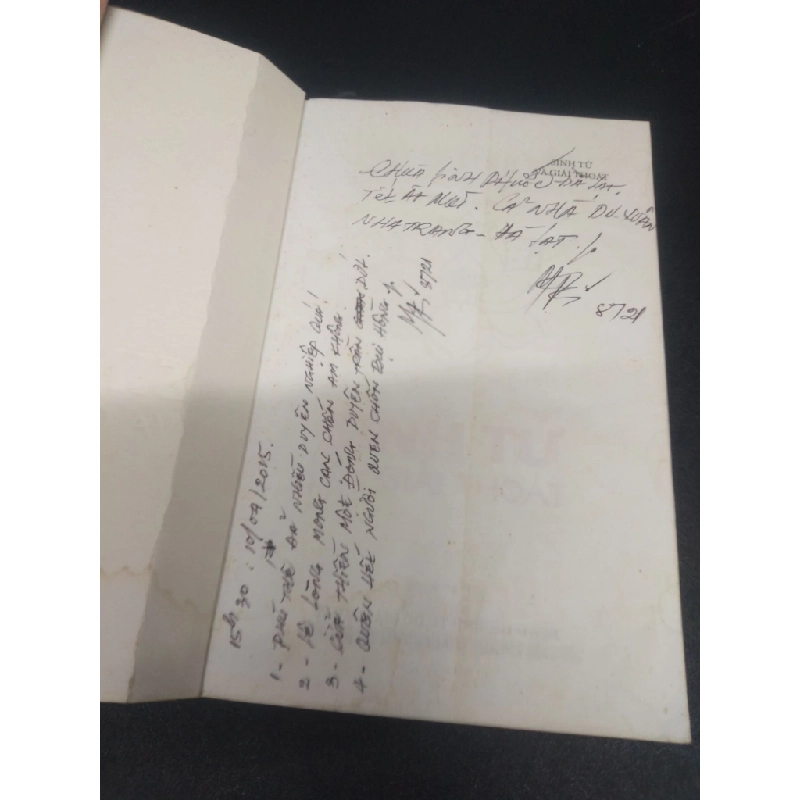 SINH TỬ
& GIẢI THOÁT
CHÙA LINH PHƯỚC ĐÀ LẠT.
TẾT ẤT MÙI. CẢ NHÀ DU XUÂN
NHATRANG - ĐÀ LẠT.
8721
15h 30 : 10/09/2015.
1 - PHÙ THẾ ĐÃ NHIỀU DUYÊN NGHIỆP QUÁ!
2 - LỆ LÒNG MONG CẠN CHỐN AM KHÔNG.
3 - CỬA THIỀN MỘT ĐÓNG DUYÊN TRẦN DỨT.
4 - QUÊN HẾT NGƯỜI QUEN CHỐN BỤI HỒNG
8721